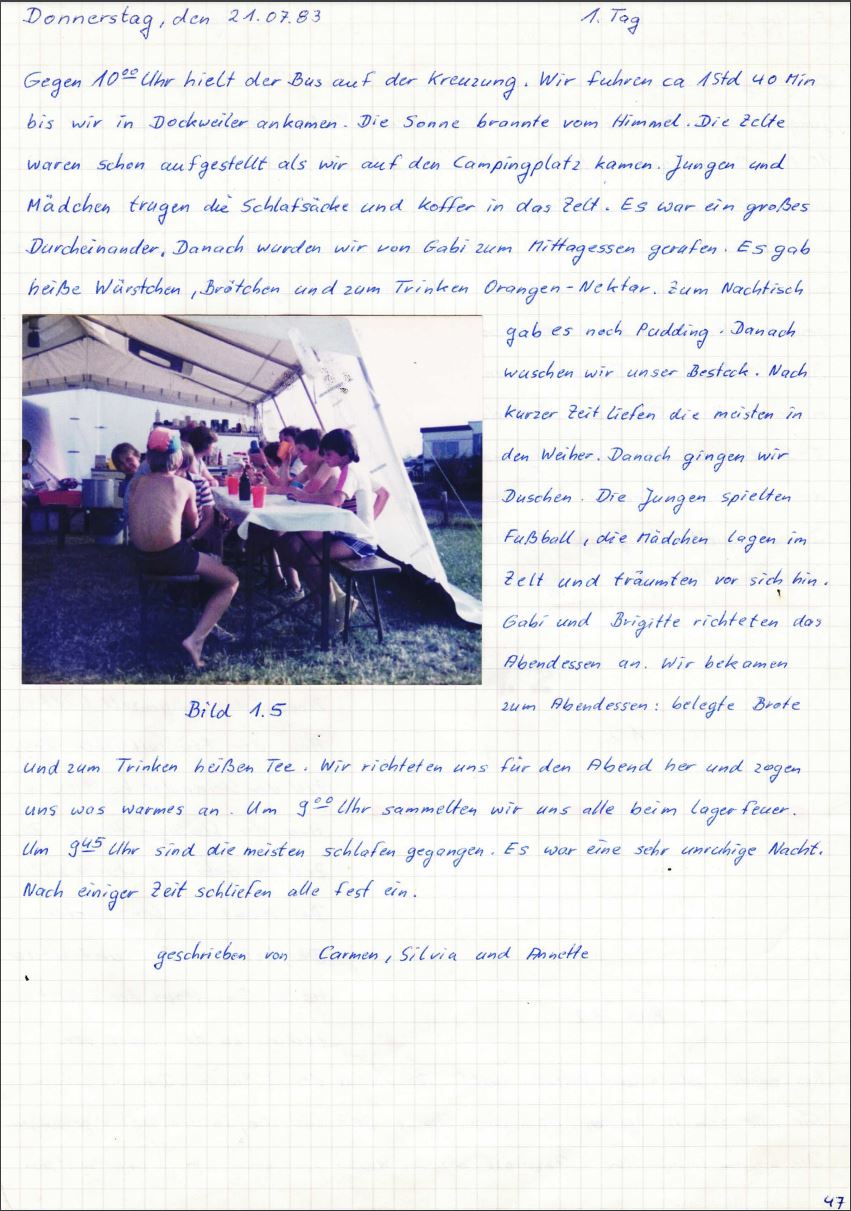 Donnerstag, den 21.07.83 1. Tag
Gegen 10⁰⁰ Uhr hielt der Bus auf der Kreuzung. Wir fuhren ca 1Std 40 Min
bis wir in Dockweiler ankamen. Die Sonne brannte vom Himmel. Die Zelte
waren schon aufgestellt als wir auf den Campingplatz kamen. Jungen und
Mädchen trugen die Schlafsäcke und Koffer in das Zelt. Es war ein großes
Durcheinander. Danach wurden wir von Gabi zum Mittagessen gerufen. Es gab
heiße Würstchen, Brötchen und zum Trinken Orangen-Nektar. Zum Nachtisch
gab es noch Pudding. Danach
wuschen wir unser Besteck. Nach
kurzer Zeit liefen die meisten in
den Weiher. Danach gingen wir
Duschen. Die Jungen spielten
Fußball, die Mädchen lagen im
Zelt und träumten vor sich hin.
Gabi und Brigitte richteten das
Abendessen an. Wir bekamen
zum Abendessen: belegte Brote
Bild 1.5
und zum Trinken heißen Tee. Wir richteten uns für den Abend her und zogen
uns was warmes an. Um 9⁰⁰ Uhr sammelten wir uns alle beim Lagerfeuer.
Um 9⁴⁵ Uhr sind die meisten schlafen gegangen. Es war eine sehr unruhige Nacht.
Nach einiger Zeit schliefen alle fest ein.
geschrieben von Carmen, Silvia und Annette
47